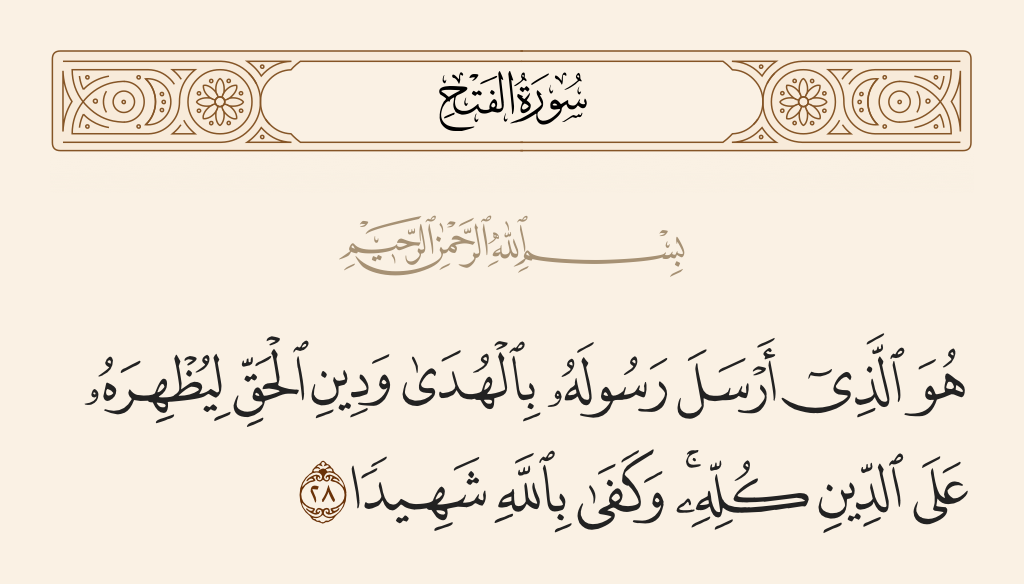 سُورَةُ الفَتۡحِ
بِسۡمِ ٱللَّهِ ٱلرَّحۡمَٰنِ ٱلرَّحِيمِ
هُوَ ٱلَّذِىٓ أَرۡسَلَ رَسُولَهُۥ بِٱلۡهُدَىٰ وَدِينِ ٱلۡحَقِّ لِيُظۡهِرَهُۥ
عَلَى ٱلدِّينِ كُلِّهِۦۚ وَكَفَىٰ بِٱللَّهِ شَهِيدًا ٢٨